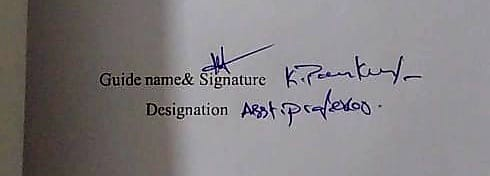 Guide name& Signature K.
Designation Asst.professor.